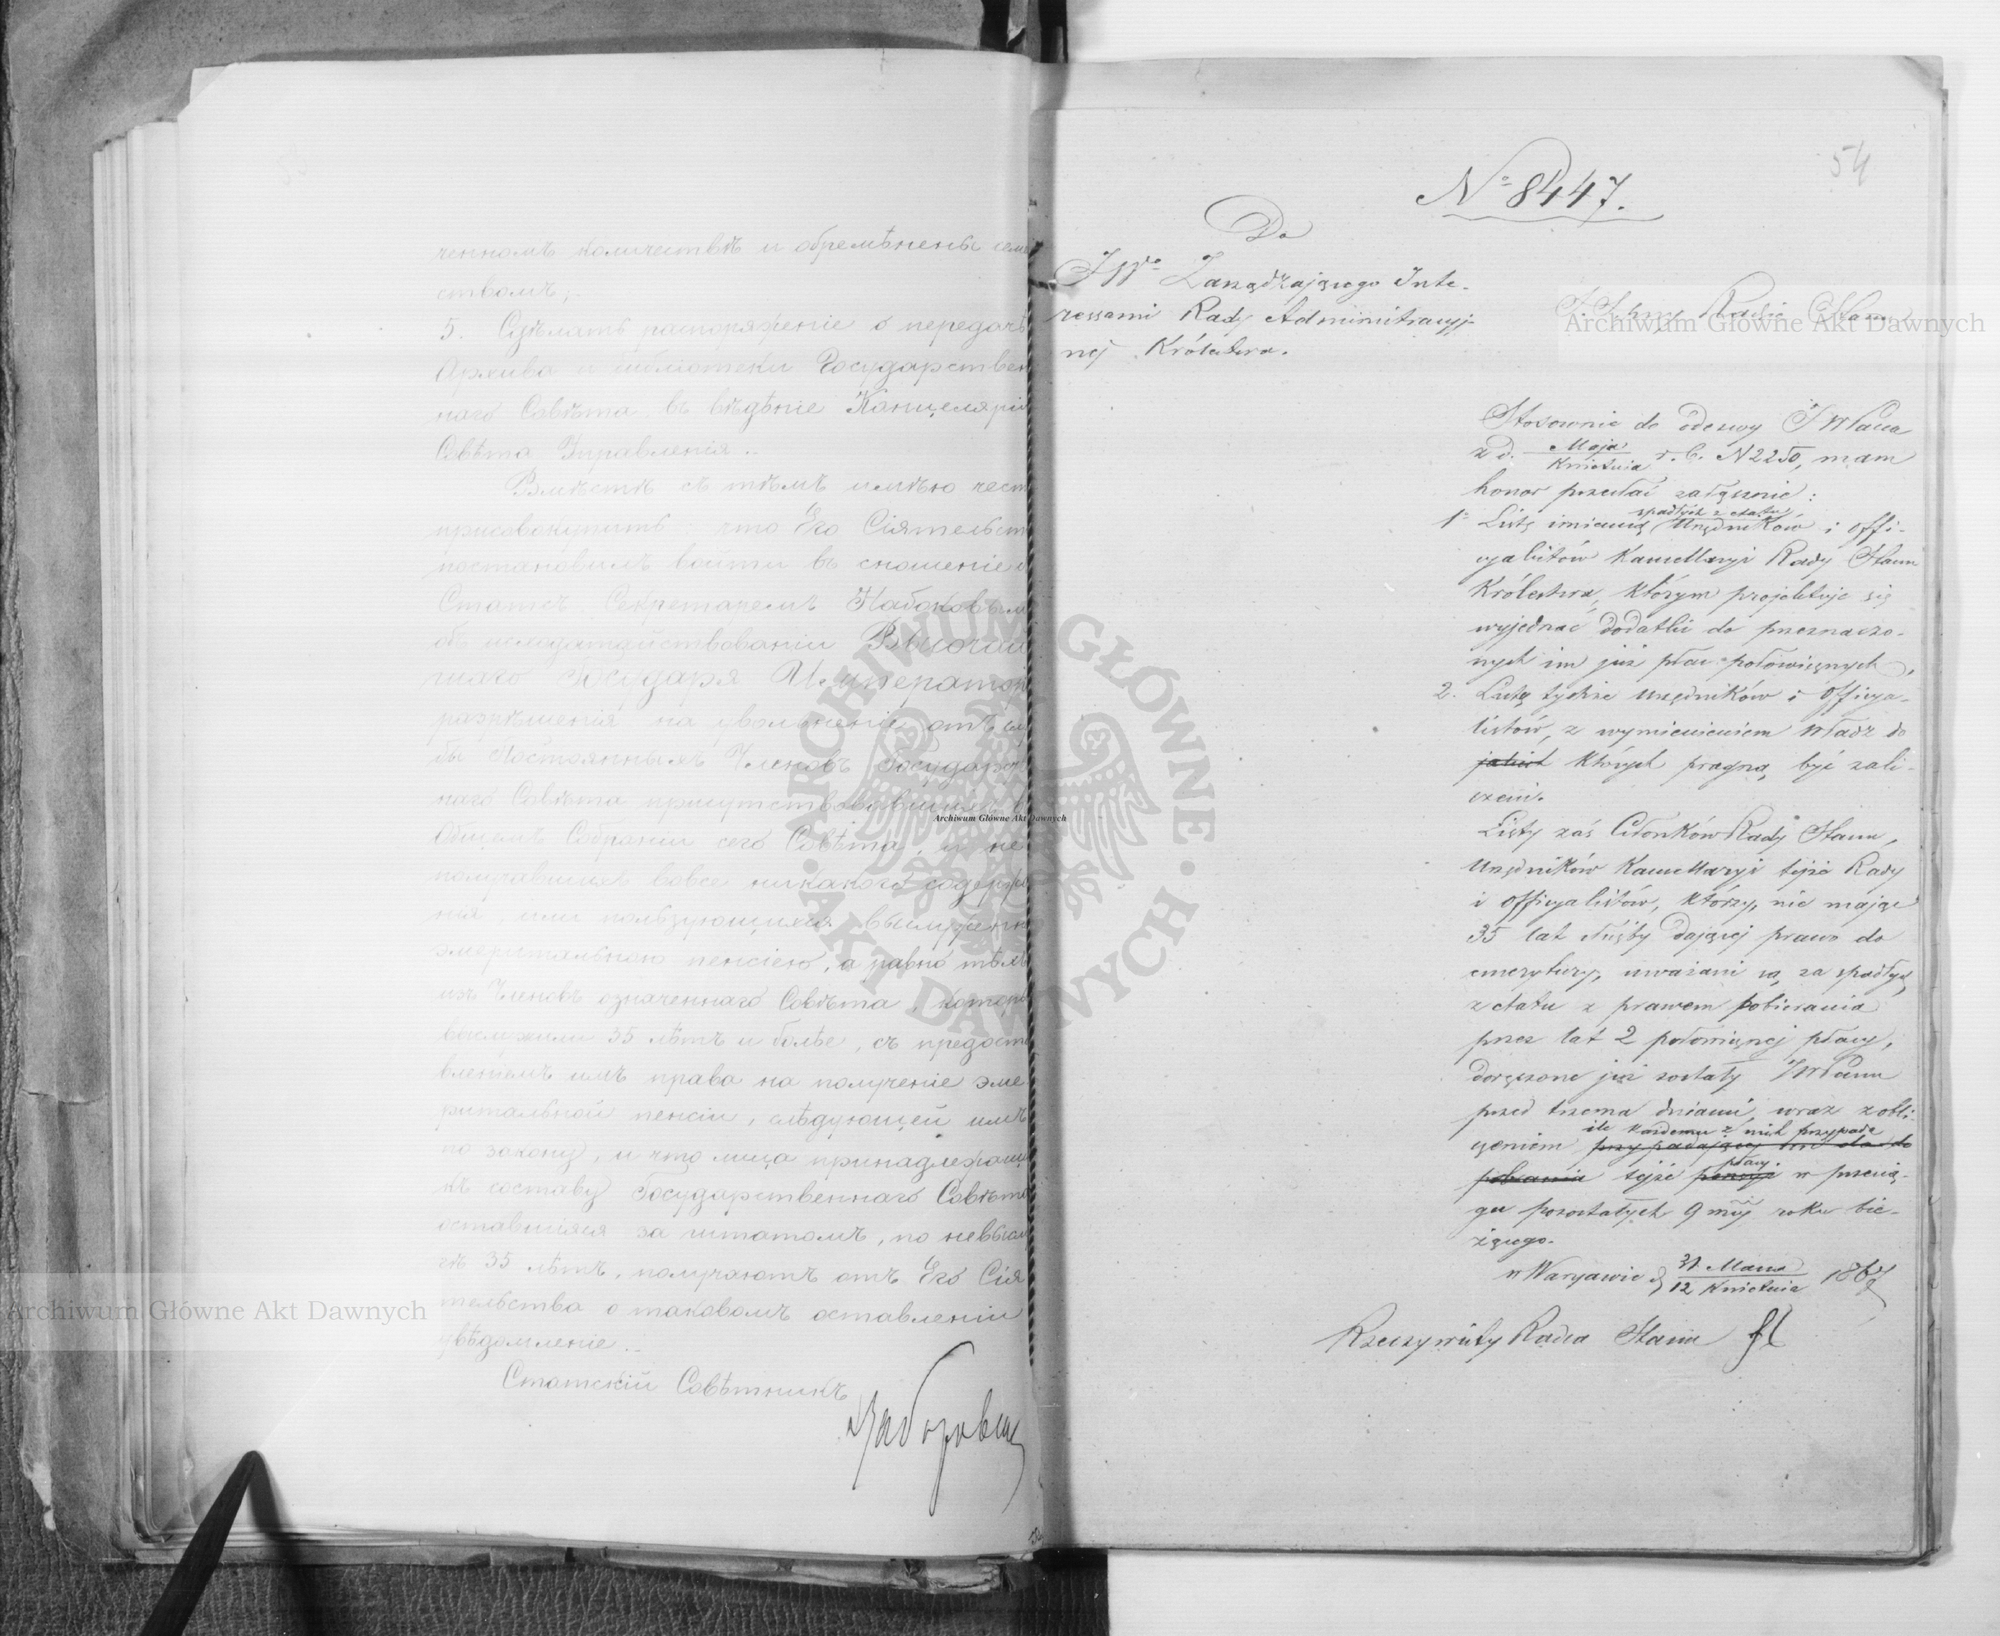 ченномъ количествѣ и обременены семей
ствомъ;.
5. Сдѣлать распоряженіе о передачѣ
Архива и библіотеки Государствен
наго Совѣта въ вѣдѣніе Канцеляріи
Совѣта Управленія..
Вмѣстѣ съ тѣмъ имѣю чест
присовокупить: что Его Сіятельст
постановилъ войти въ сношеніе
Статсъ Секретаремъ Набоковым
объ исходатайствованіи Высочай
шаго Государя Император
разрѣшенія на увольненіе отъ
бы Постоянныхъ Членовъ Государст
наго Совѣта присутствовавшихъ в
Общемъ Собраніи сего Совѣта, и не
получавшихъ вовсе никакого содержа
нія, или пользующихся
эмеритальною пенсіею, а равно тѣхъ
изъ Членовъ означеннаго Совѣта, котор
выслужили 35 лѣтъ и болѣе, съ предост
вленіемъ имъ права на полученіе эме
ритальной пенсіи, слѣдующей имъ
по закону, и что лица принадлежащ
къ составу Государственнаго Совѣта
оставшіяся за штатомъ, по невыслу
гѣ 35 лѣтъ, получаютъ отъ Его Сія
тельства о таковомъ оставленіи
увѣдомленіе..
Статскій Совѣтникъ
54
No 8447.
Do
JWo Zarządzającego Inte-
ressami Rady Administracyj-
nej Królestwa.
Radcy Stanu
Stosownie do odezwy JWPana
z d. Maja / Kwietnia r. b. N 2250, mam
honor przesłać załącznie:
1o Listę imienną spadłych z etatu Urzędników i offi-
cyalistów Kancellaryi Rady Stanu
Królestwa, którym projektuje się
wyjednać dodatki do przeznaczo-
nych im już płac połowicznych,
2. Listę tychże urzędników i Officya-
listów, z wymienieniem Władz do
jakich których pragną być zali-
czeni.
Listy zaś Członków Rady Stanu,
Urzędników Kancellaryi tejże Rady
i Officyalistów, którzy, nie mając
35 lat służby dającej prawo do
emerytury, uważani są za spadłych
z etatu z prawem pobierania
przez lat 2 połowicznej płacy,
doręczone już zostały JWPanu
przed trzema dniami, wraz z obli-
ile każdemu z nich przypada
czeniem przypadającej im do
pobrania tejże pensyi płacy w przecią-
gu pozostałych 9 mcy roku bie-
żącego.
w Warszawie d 31 Marca / 12 Kwietnia 1867
Rzeczywisty Radca Stanu
Archiwum Główne Akt Dawnych
Archiwum Główne Akt Dawnych
Archiwum Główne Akt Dawnych
ARCHIWUM GŁÓWNE · AKT DAWNYCH ·